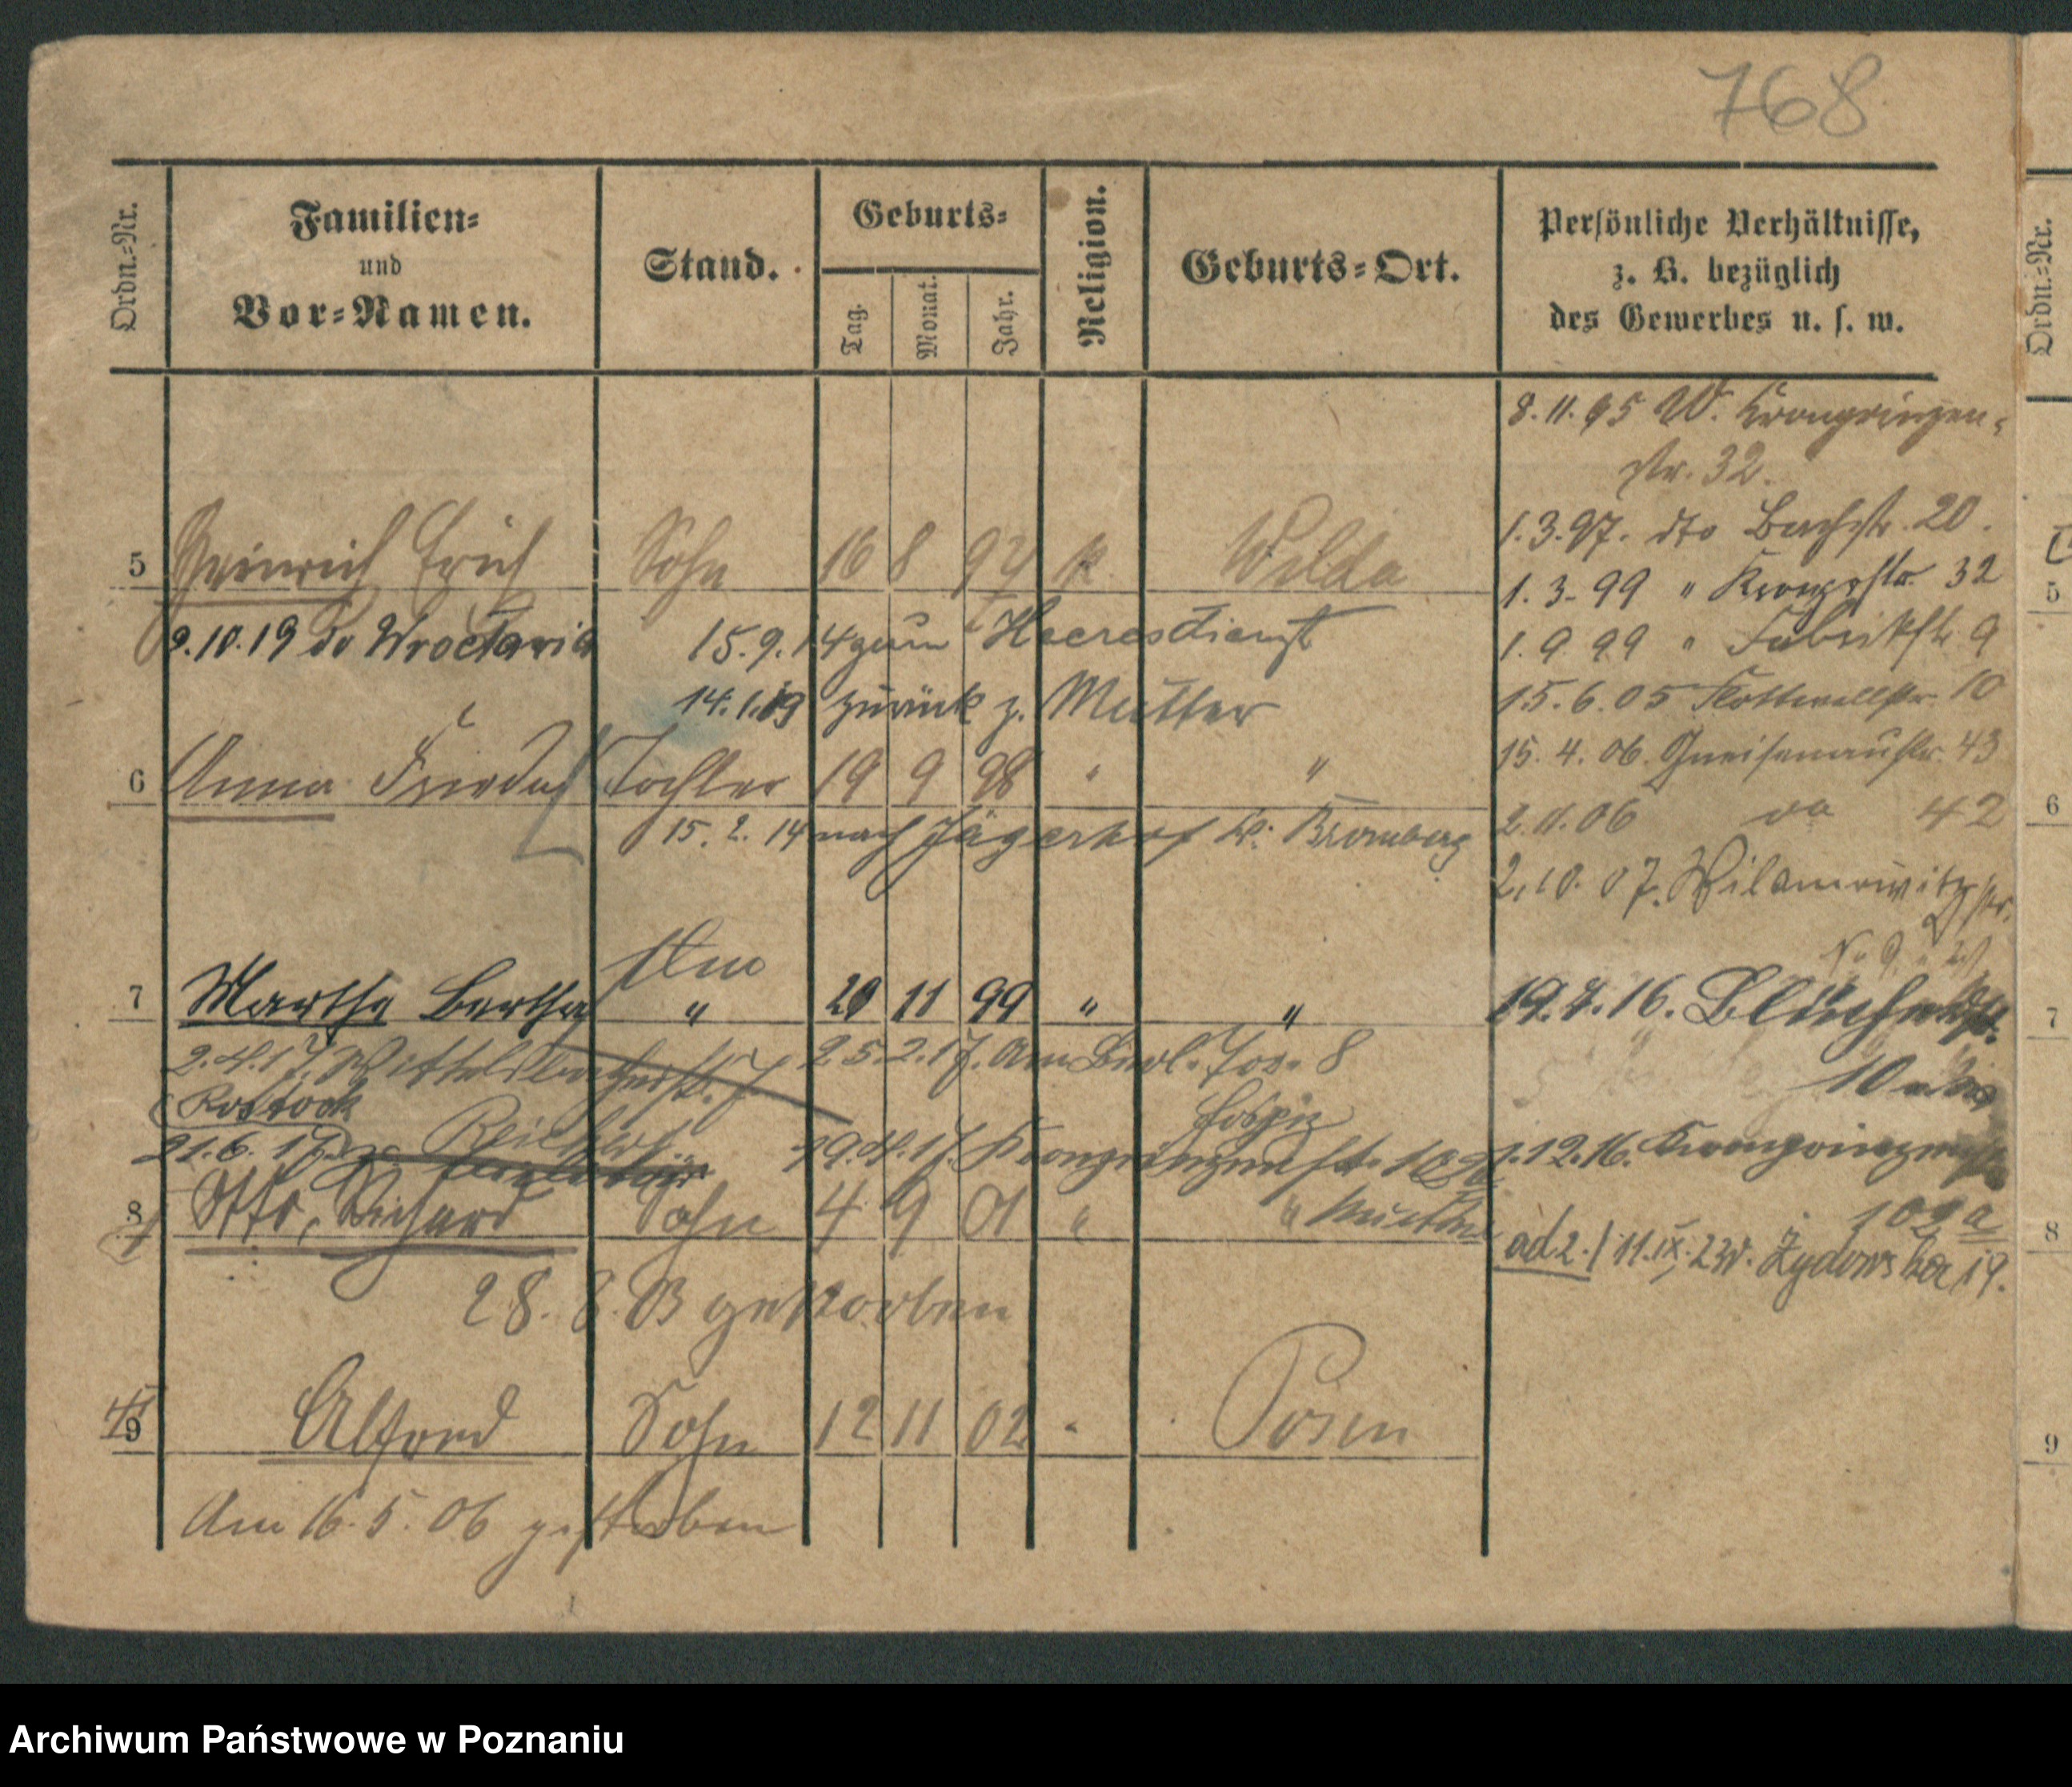 768
Ordn.-Nr.
Familien-
und
Vor-Namen.
Stand.
Geburts-
Tag.
Monat.
Jahr.
Religion.
Geburts-Ort.
Persönliche Verhältnisse,
z. B. bezüglich
des Gewerbes u. s. w.
Ordn.-Nr.
8.11.95 W. Kronprinzen-
str. 32.
1.3.97. dto Bachstr. 20.
5 Heinrich Erich Sohn 16 8 k. Wilda
1.3.99 " Kronprstr. 32
5
9.10.19 do Wrocławia
15.9.14 zum Heeresdienst
1.9.99 " Fabrikstr. 9
14.1.19 zurück z. Mutter
15.6.05 Flottwellstr. 10
6 Anna Frieda Tochter 19 9 98 " "
15.4.06. Gneisenaustr. 43
15.2.14 nach Jägerhof Kr. Bromberg
2.11.06 do 42
6
2.10.07. Wilamowitzstr.
7 Martha Bertha " 20 11 99 " "
19.4.16. Blücherstr.
10
7
2.4.17. Wittelsbacherstr. 7
25.2.17. Am Berl. Tor 8
Rostock
Hospiz
21.6.17
29.4.17. Kronprinzenstr.
1.12.16. Kronprinzenstr.
102a
8 Otto, Richard Sohn 4 9 01 " "
ad 2./ 11.IX.23 W. Żydowska 19.
8
28.8.03 gestorben
9 Alfred Sohn 12 11 02 " Posen
9
Am 16.5.06 gestorben
Archiwum Państwowe w Poznaniu